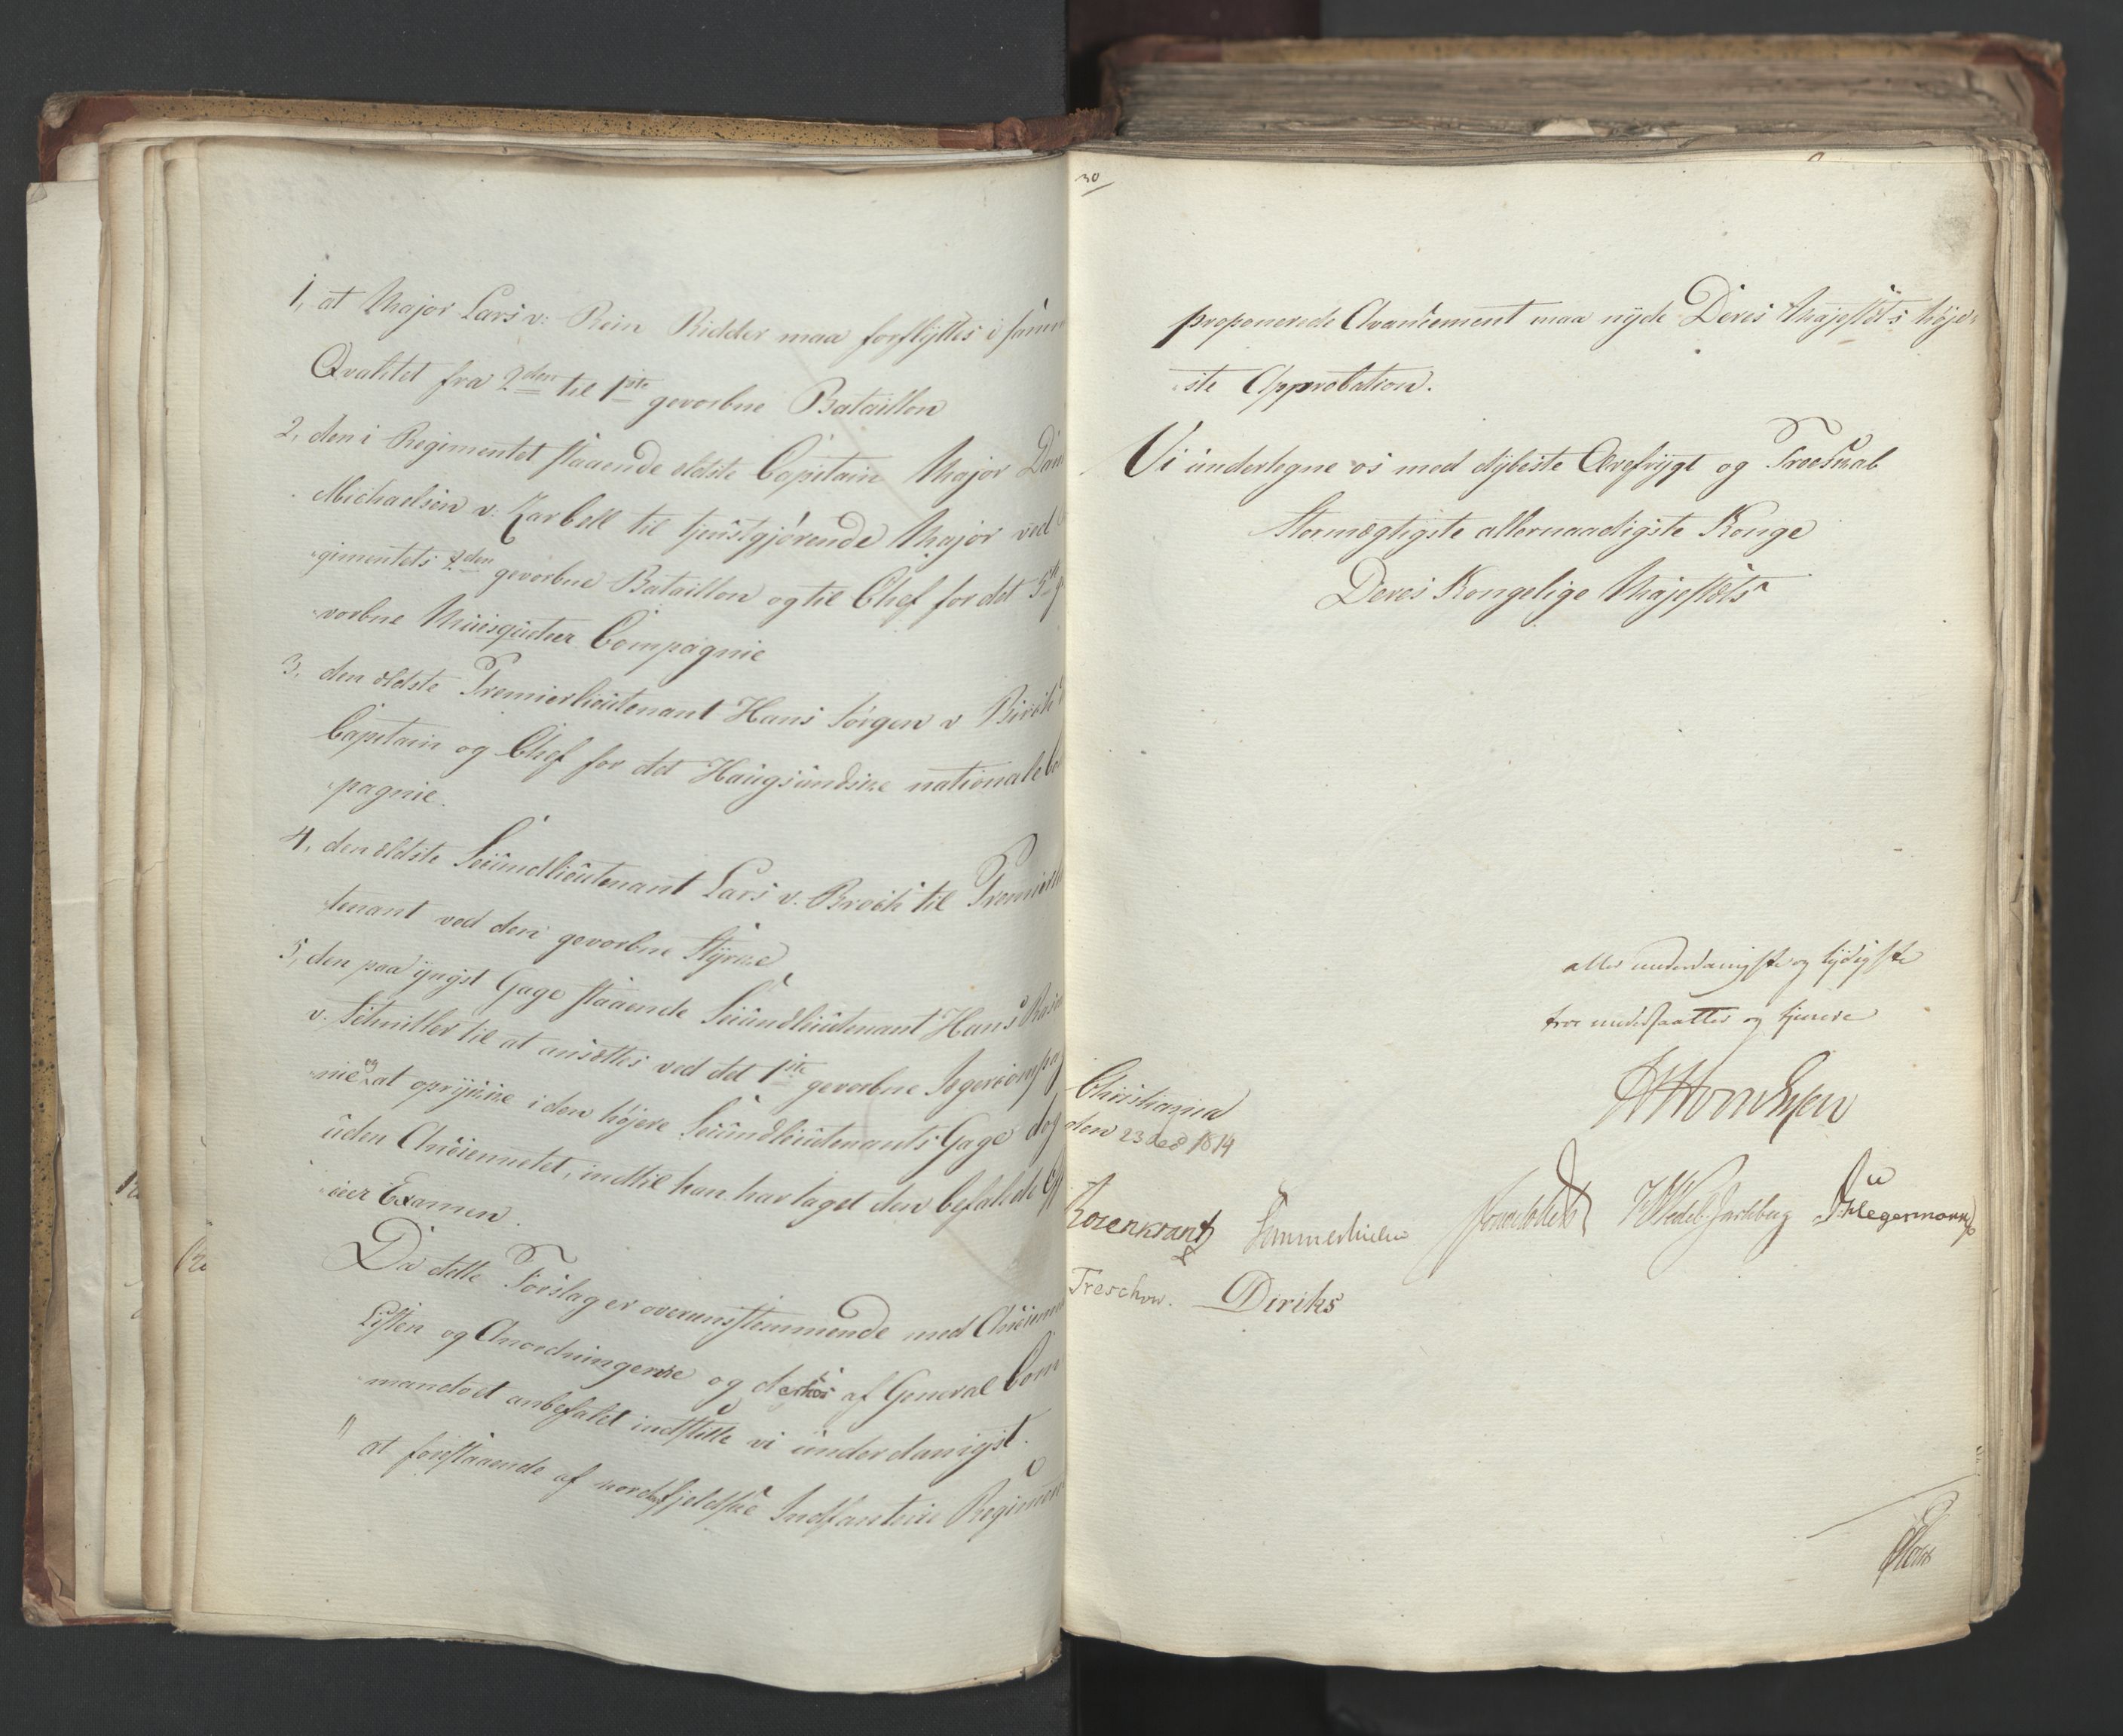 1, at Major Lars v: Rein Ridder maa forflyttes i samm
Qvalitet fra 2den til 1ste gevorbne Bataillon
2, den i Regimentet staaende eldste Capitain Major Dan
Michaelsen v. Zarbell til tjenstgjørende Major ved
gimentets 2den gevorbne Bataillon og til Chef for det 5te g
vorbne Musqueteer Compagnie
3, den ældste Premierlieutenant Hans Jørgen v
Capitain og Chef for det Haugsundske nationale Co
pagnie.
4, den ældste Secundlieutenant Lars v. Broch til Premierl
tenant ved den gevorbne Styrke
5, den paa yngst Gage staaende Secundlieutenant Hans
v. Schnitler til at ansættes ved det 1ste gevorbne Jegercompag
nie og at oprykke i den højere Secundlieutenants Gage dog
uden Anciennetet, indtil han har taget den befalede Off
iceer Examen.
Da dette Forslag er overensstemmende med Ancienne
Listen og Anordningerne og af General Com
mandoet anbefalet indstille vi underdanigst.
" at forestaaende af nordenfjeldske Indfanterie Regimen
30
proponerede Avancement maa nyde Deres Majestets høje
ste Approbation.
Vi undertegne os med dybeste Ærefrygt og Troeskab
Stormægtigste allernaadigste Konge
Deres Kongelige Majestæts
aller underdanigste og lydigste
troe undersaatter og tjenere
Christiania
den 23 Dec 1814
Rosenkrantz Sommerhielm HWedel Jarlsberg Hegermann
Treschow. Diriks